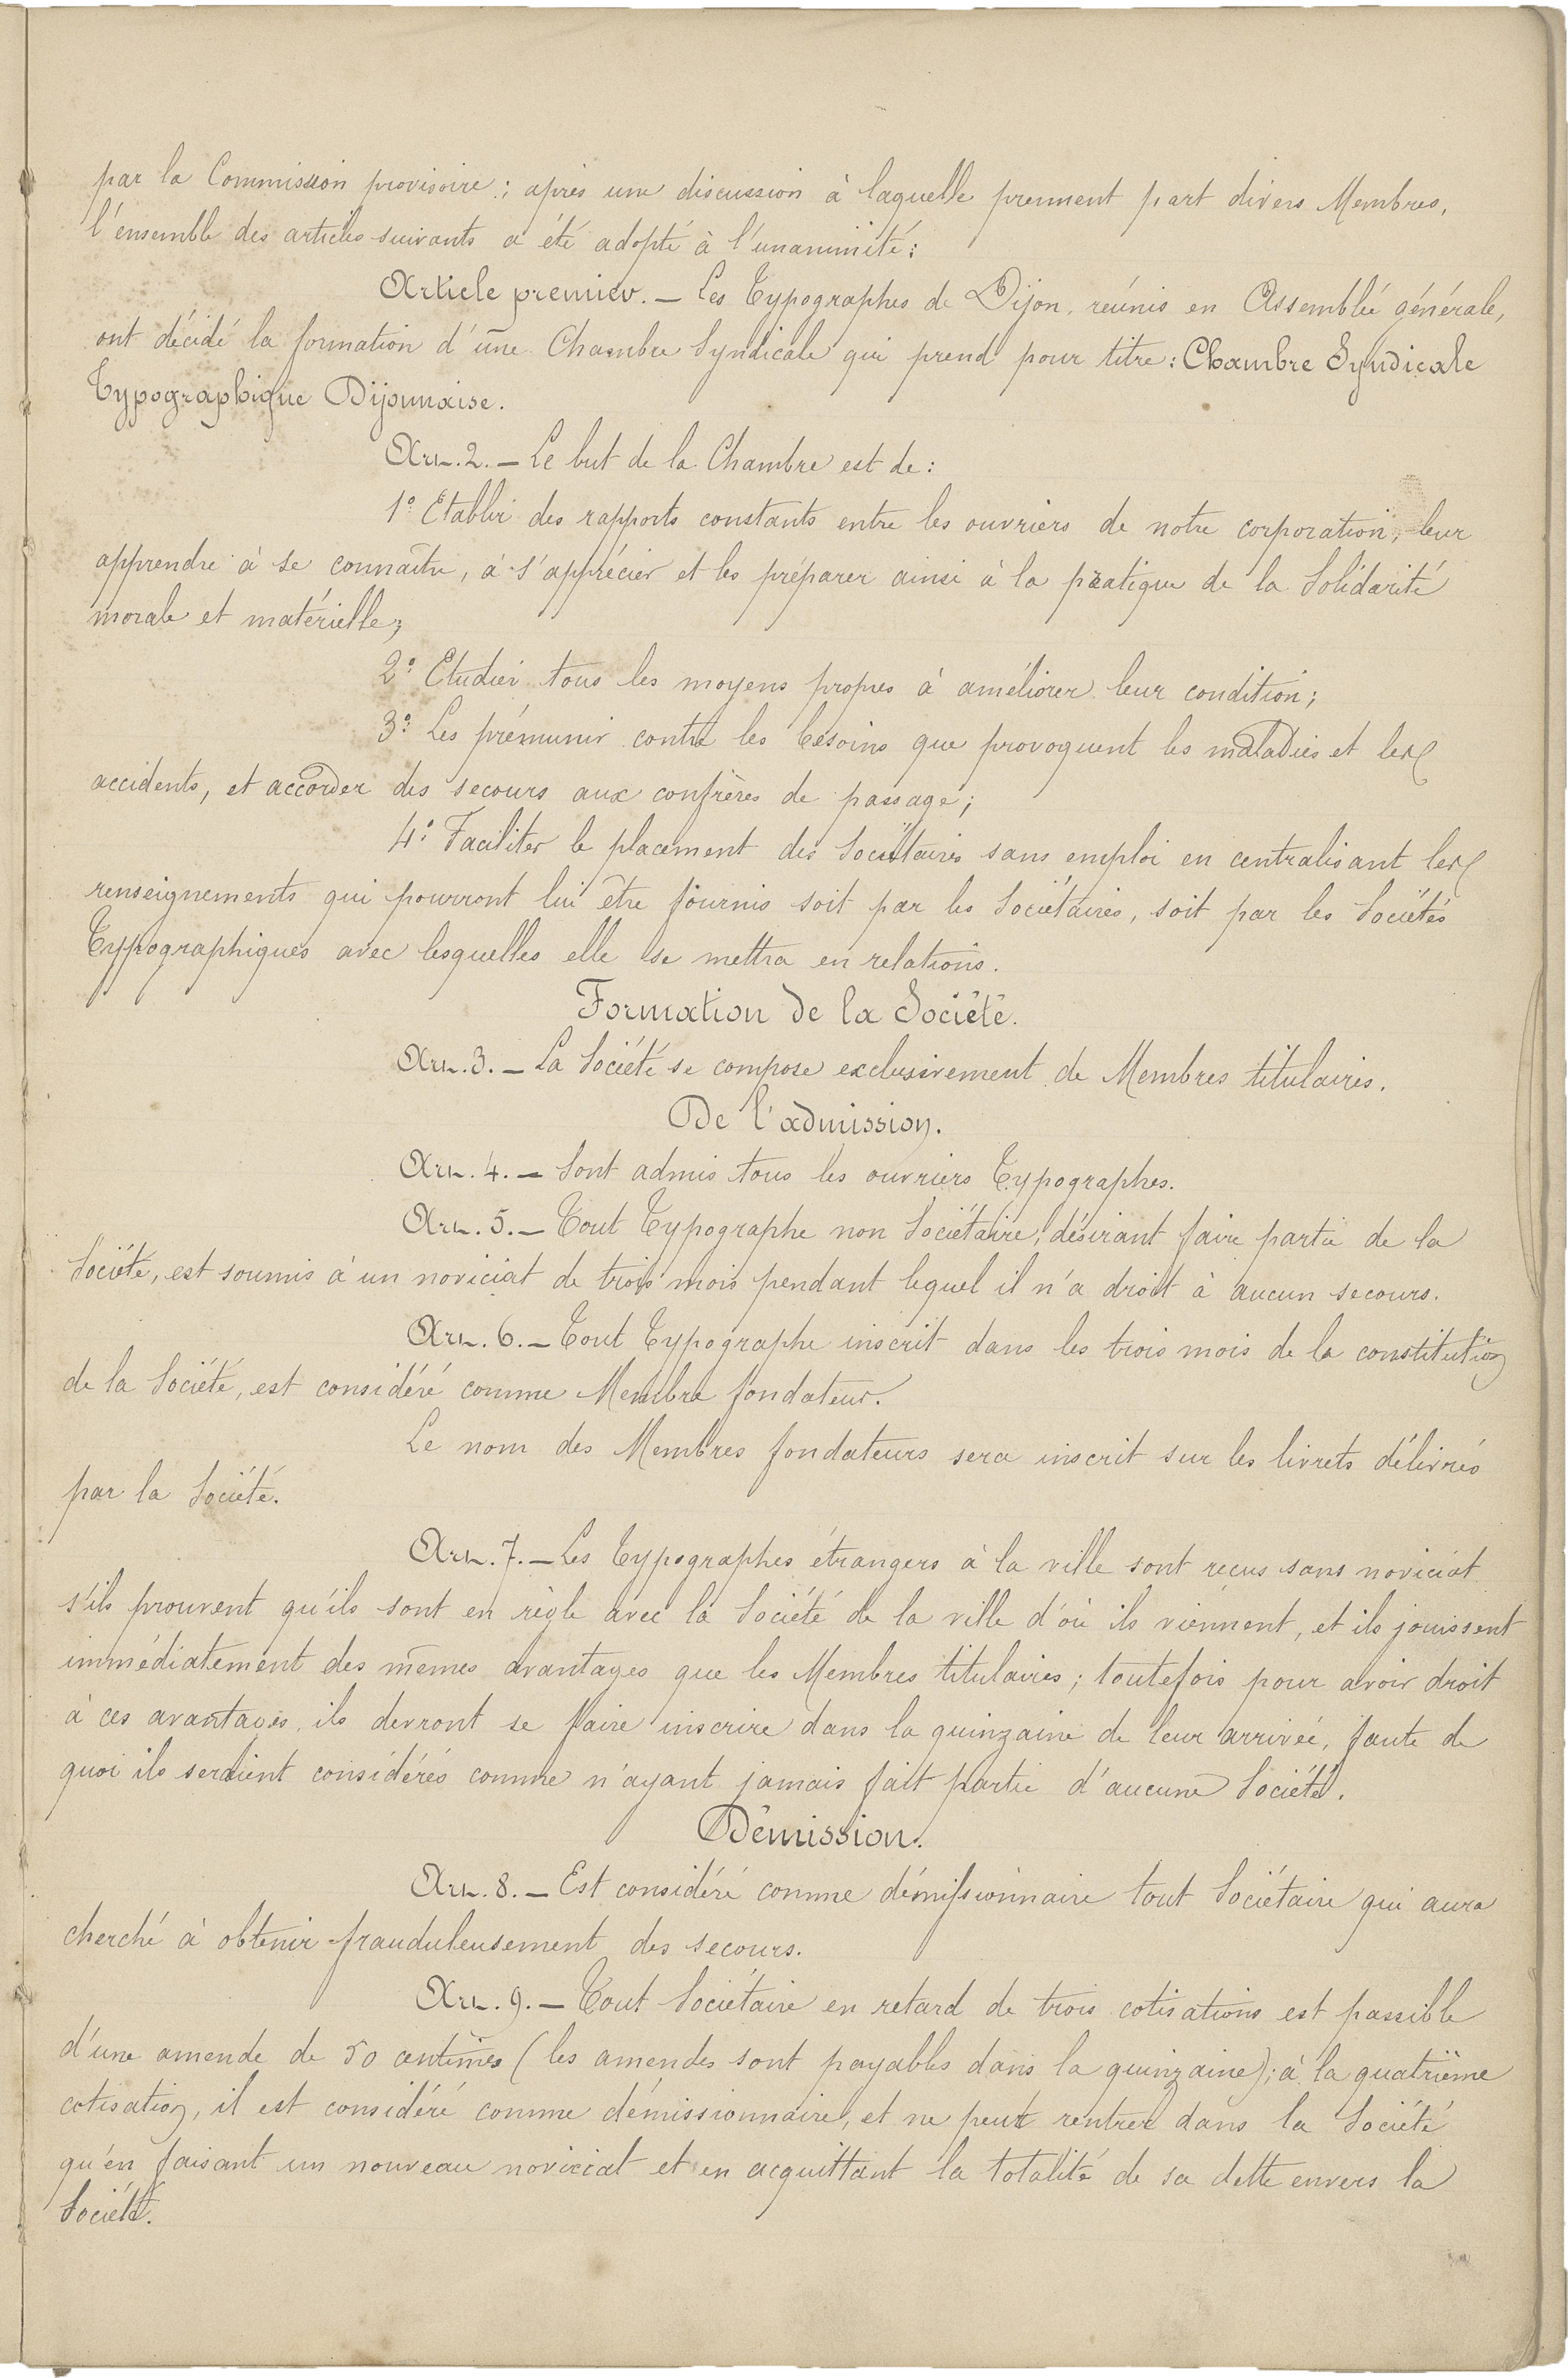 par la Commission provisoire ; après une discussion à laquelle prennent part divers Membres,
l'ensemble des articles suivants a été adopté à l'unanimité :
Article premier. — Les Typographes de Dijon, réunis en Assemblée générale,
ont décidé la formation d'une Chambre Syndicale qui prend pour titre : Chambre Syndicale
Typographique Dijonnaise.
Art. 2. — Le but de la Chambre est de :
1° Etablir des rapports constants entre les ouvriers de notre corporation, leur
apprendre à se connaître, à s'apprécier et les préparer ainsi à la pratique de la Solidarité
morale et matérielle ;
2° Etudier tous les moyens propres à améliorer leur condition ;
3° Les prémunir contre les besoins que provoquent les maladies et les
accidents, et accorder des secours aux confrères de passage ;
4° Faciliter le placement des Sociétaires sans emploi en centralisant les
renseignements qui pourront lui être fournis soit par les Sociétaires, soit par les Sociétés
Typographiques avec lesquelles elle se mettra en relations.
Formation de la Société.
Art. 3. — La Société se compose exclusivement de Membres titulaires.
De l'admission.
Art. 4. — Sont admis tous les ouvriers Typographes.
Art. 5. — Tout Typographe non Sociétaire, désirant faire partie de la
Société, est soumis à un noviciat de trois mois pendant lequel il n'a droit à aucun secours.
Art. 6. — Tout Typographe inscrit dans les trois mois de la constitution
de la Société, est considéré comme Membre fondateur.
Le nom des Membres fondateurs sera inscrit sur les livrets délivrés
par la Société.
Art. 7. — Les Typographes étrangers à la ville sont reçus sans noviciat
s'ils prouvent qu'ils sont en règle avec la Société de la ville d'où ils viennent, et ils jouissent
immédiatement des mêmes avantages que les Membres titulaires ; toutefois pour avoir droit
à ces avantages, ils devront se faire inscrire dans la quinzaine de leur arrivée, faute de
quoi ils seraient considérés comme n'ayant jamais fait partie d'aucune Société.
Démission.
Art. 8. — Est considéré comme démissionnaire tout Sociétaire qui aura
cherché à obtenir frauduleusement des secours.
Art. 9. — Tout Sociétaire en retard de trois cotisations est passible
d'une amende de 50 centimes (les amendes sont payables dans la quinzaine) ; à la quatrième
cotisation, il est considéré comme démissionnaire, et ne peut rentrer dans la Société
qu'en faisant un nouveau noviciat et en acquittant la totalité de sa dette envers la
Société.